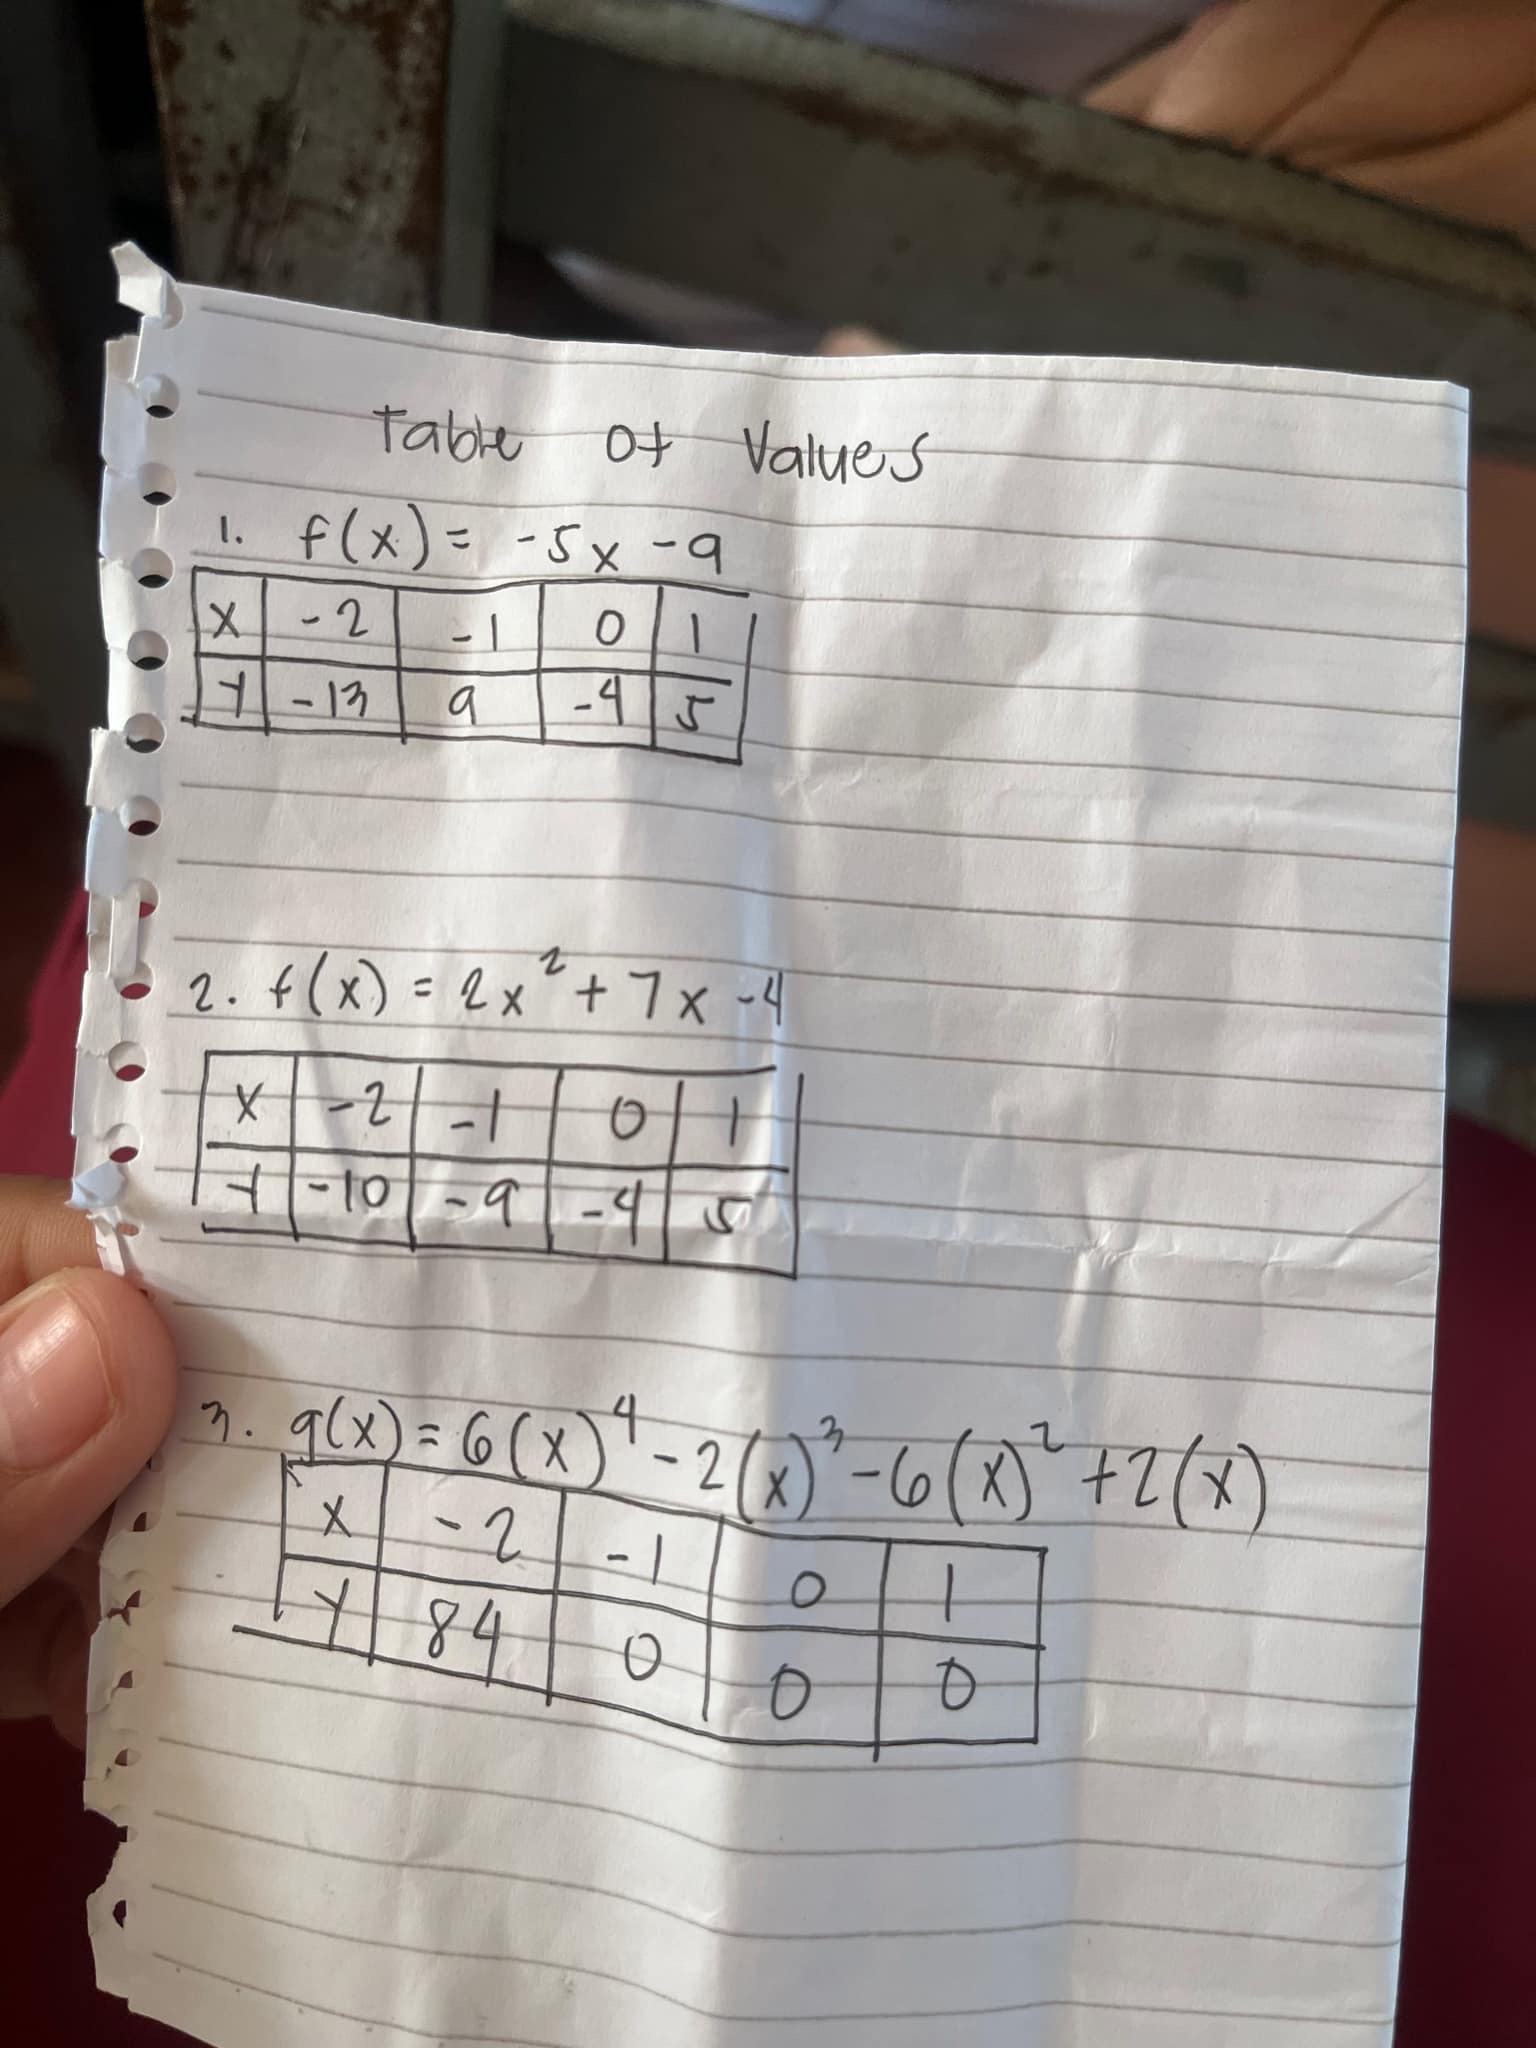 Table Of Values
1. f(x) = -5x -9
X -2 -1 0 1
Y -13 9 -4 5
2. f(x) = 2x² + 7x -4
X -2 -1 0 1
Y -10 -9 -4 5
3. g(x) = 6(x)⁴ - 2(x)³ - 6(x)² + 2(x)
X -2 -1 0 1
Y 84 0 0 0